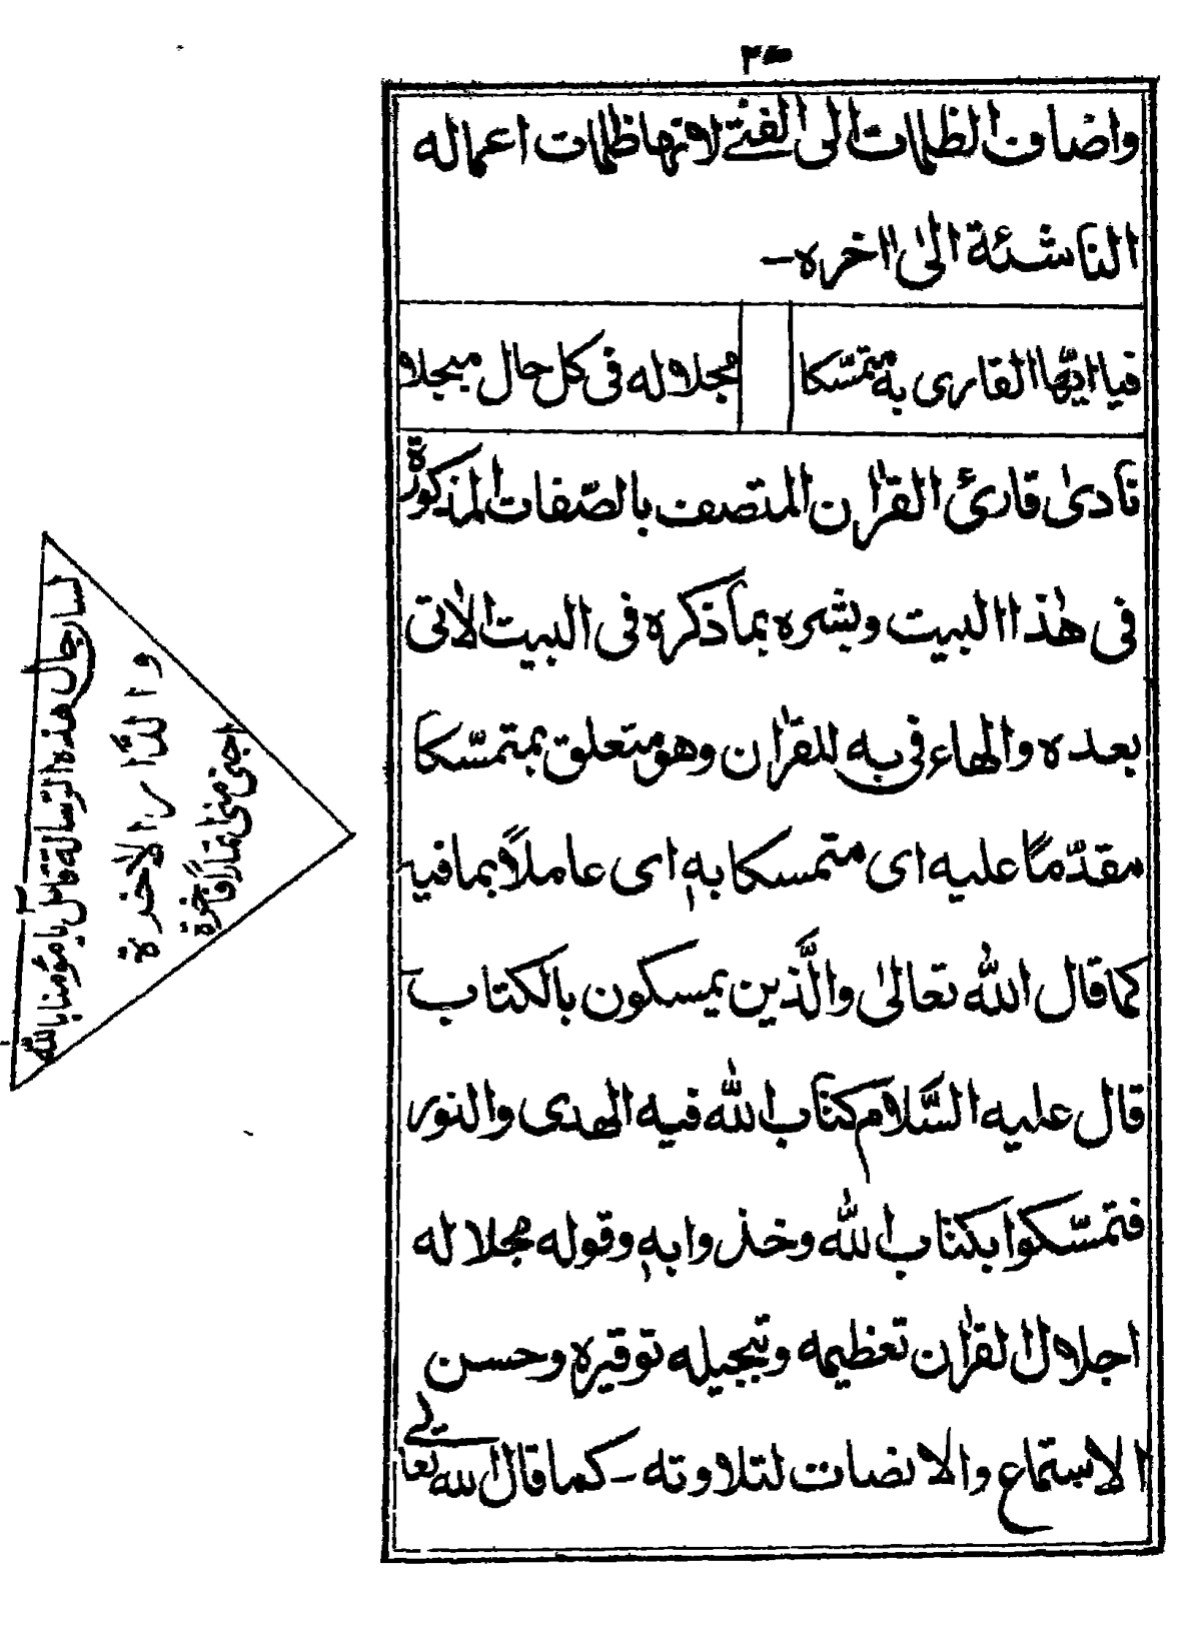 ٣٠
واضاف الظلمات الى الفتے لانها ظلمات اعماله
الناشئة الىٰ اٰخره -
فيا ايّها القارى به متمسّكا مجلا له فى كل حال مبجلا
نادىٰ قارئ القراٰن المتصف بالصّفات المذكورة
فى هٰذا البيت وبشره بما ذكره فى البيت الاٰتى
بعده والهاء فى به للقراٰن وهو متعلق بمتمسّكا
مقدّمًا عليه اى متمسكا بهٖ اى عاملاً بما فيه
كما قال اللّٰه تعالىٰ والَّذين يمسكون بالكتاب
قال عليه السَّلام كتاب اللّٰه فيه الهدى والنور
فتمسّكوا بكتاب اللّٰه وخذوا بهٖ وقوله مجلا له
اجلال القراٰن تعظيمه وتبجيله توقيره وحسن
الاستماع والانصات لتلاوته - كما قال اللّٰه تعالے
لسارجال هذه الرّسالة قائل يا مؤمنا باللّٰه
والدّار الاخرة
اجنى منى ثمارًا فاخرة